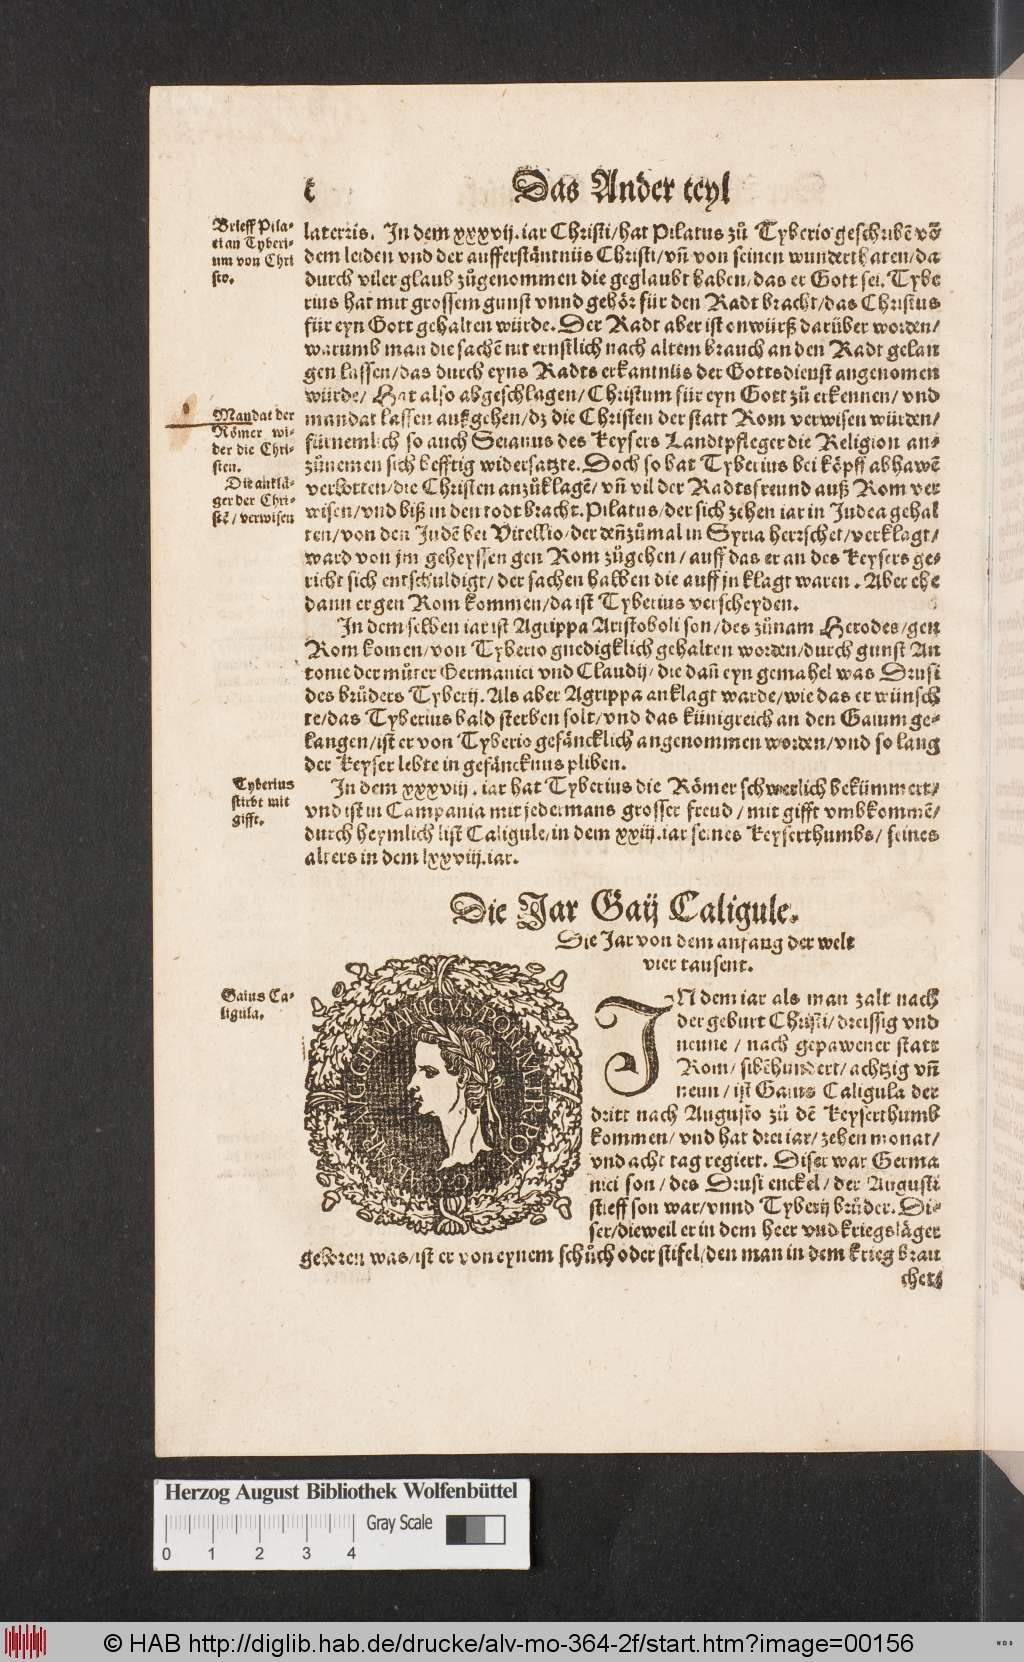 Das Ander teyl
Brieff Pila-
ti an Tyberi-
um von Chri
sto.
laterris. In dem xxxvij. iar Christi/ hat Pilatus zů Tyberio geschribē võ
dem leiden vnd der aufferstäntnüs Christi/ vñ von seinen wunderthaten/ da
durch viler glaub zůgenommen die geglaubt haben/ das er Gott sei. Tybe
rius hat mit grossem gunst vnnd gehör für den Radt bracht/ das Christus
für eyn Gott gehalten würde. Der Radt aber ist onwürß darüber worden/
warumb man die sachē nit ernstlich nach altem brauch an den Radt gelan
gen lassen/ das durch eyns Radts erkantnüs der Gottsdienst angenomen
würde/ Hat also abgeschlagen/ Christum für eyn Gott zů erkennen/ vnd
Mandat der
Römer wi-
der die Chri-
sten.
Die anklä-
ger der Chri-
stē/ verwisen
mandat lassen außgehen/ dz die Christen der statt Rom verwisen würden/
fürnemlich so auch Seianus des Keysers Landtpfleger die Religion an-
zůnemen sich hefftig widersatzte. Doch so hat Tyberius bei köpff abhawē
verbotten/ die Christen anzůklagē/ vñ vil der Radtsfreund auß Rom ver
wisen/ vnd biß in den todt bracht. Pilatus/ der sich zehen iar in Judea gehal
ten/ von den Judē bei Vitellio/ der deñ zůmal in Syria herrschet/ verklagt/
ward von jm geheyssen gen Rom zůgehen/ auff das er an des Keysers ge-
richt sich entschuldigt/ der sachen halben die auff jn klagt waren. Aber ehe
dann er gen Rom kommen/ da ist Tyberius verscheyden.
In dem selben iar ist Agrippa Aristoboli son/ des zůnam Herodes/ gen
Rom komen/ von Tyberio gnedigklich gehalten worden/ durch gunst An
tonie der můter Germanici vnd Claudij/ die dañ eyn gemahel was Drusi
des brůders Tyberij. Als aber Agrippa anklagt warde/ wie das er wünsch
te/ das Tyberius bald sterben solt/ vnd das künigreich an den Gaium ge-
langen/ ist er von Tyberio gefäncklich angenommen worden/ vnd so lang
der Keyser lebte in gefäncknus pliben.
Tyberius
stirbt mit
gifft.
In dem xxxviij. iar hat Tyberius die Römer schwerlich bekümmert/
vnd ist in Campania mit jedermans grosser freud/ mit gifft vmbkommē/
durch heymlich list Caligule/ in dem xxiij. iar seines Keyserthumbs/ seines
alters in dem lxxviij. iar.
Die Jar Gaij Caligule.
Die Jar von dem anfang der welt
vier tausent.
Gaius Ca-
ligula.
IN dem iar als man zalt nach
der geburt Christi/ dreissig vnd
neune/ nach gepawener statt
Rom/ sibēhundert/ achtzig vñ
neun/ ist Gaius Caligula der
dritt nach Augusto zů dē Keyserthumb
kommen/ vnd hat drei iar/ zehen monat/
vnd acht tag regiert. Diser war Germa
nici son/ des Drusi enckel/ der Augusti
stieff son war/ vnnd Tyberij brůder. Di-
ser/ dieweil er in dem heer vnd kriegsläger
geboren was/ ist er von eynem schůch oder stifel/ den man in dem krieg brau
chet/
Herzog August Bibliothek Wolfenbüttel
Gray Scale
0 1 2 3 4
© HAB http://diglib.hab.de/drucke/alv-mo-364-2f/start.htm?image=00156